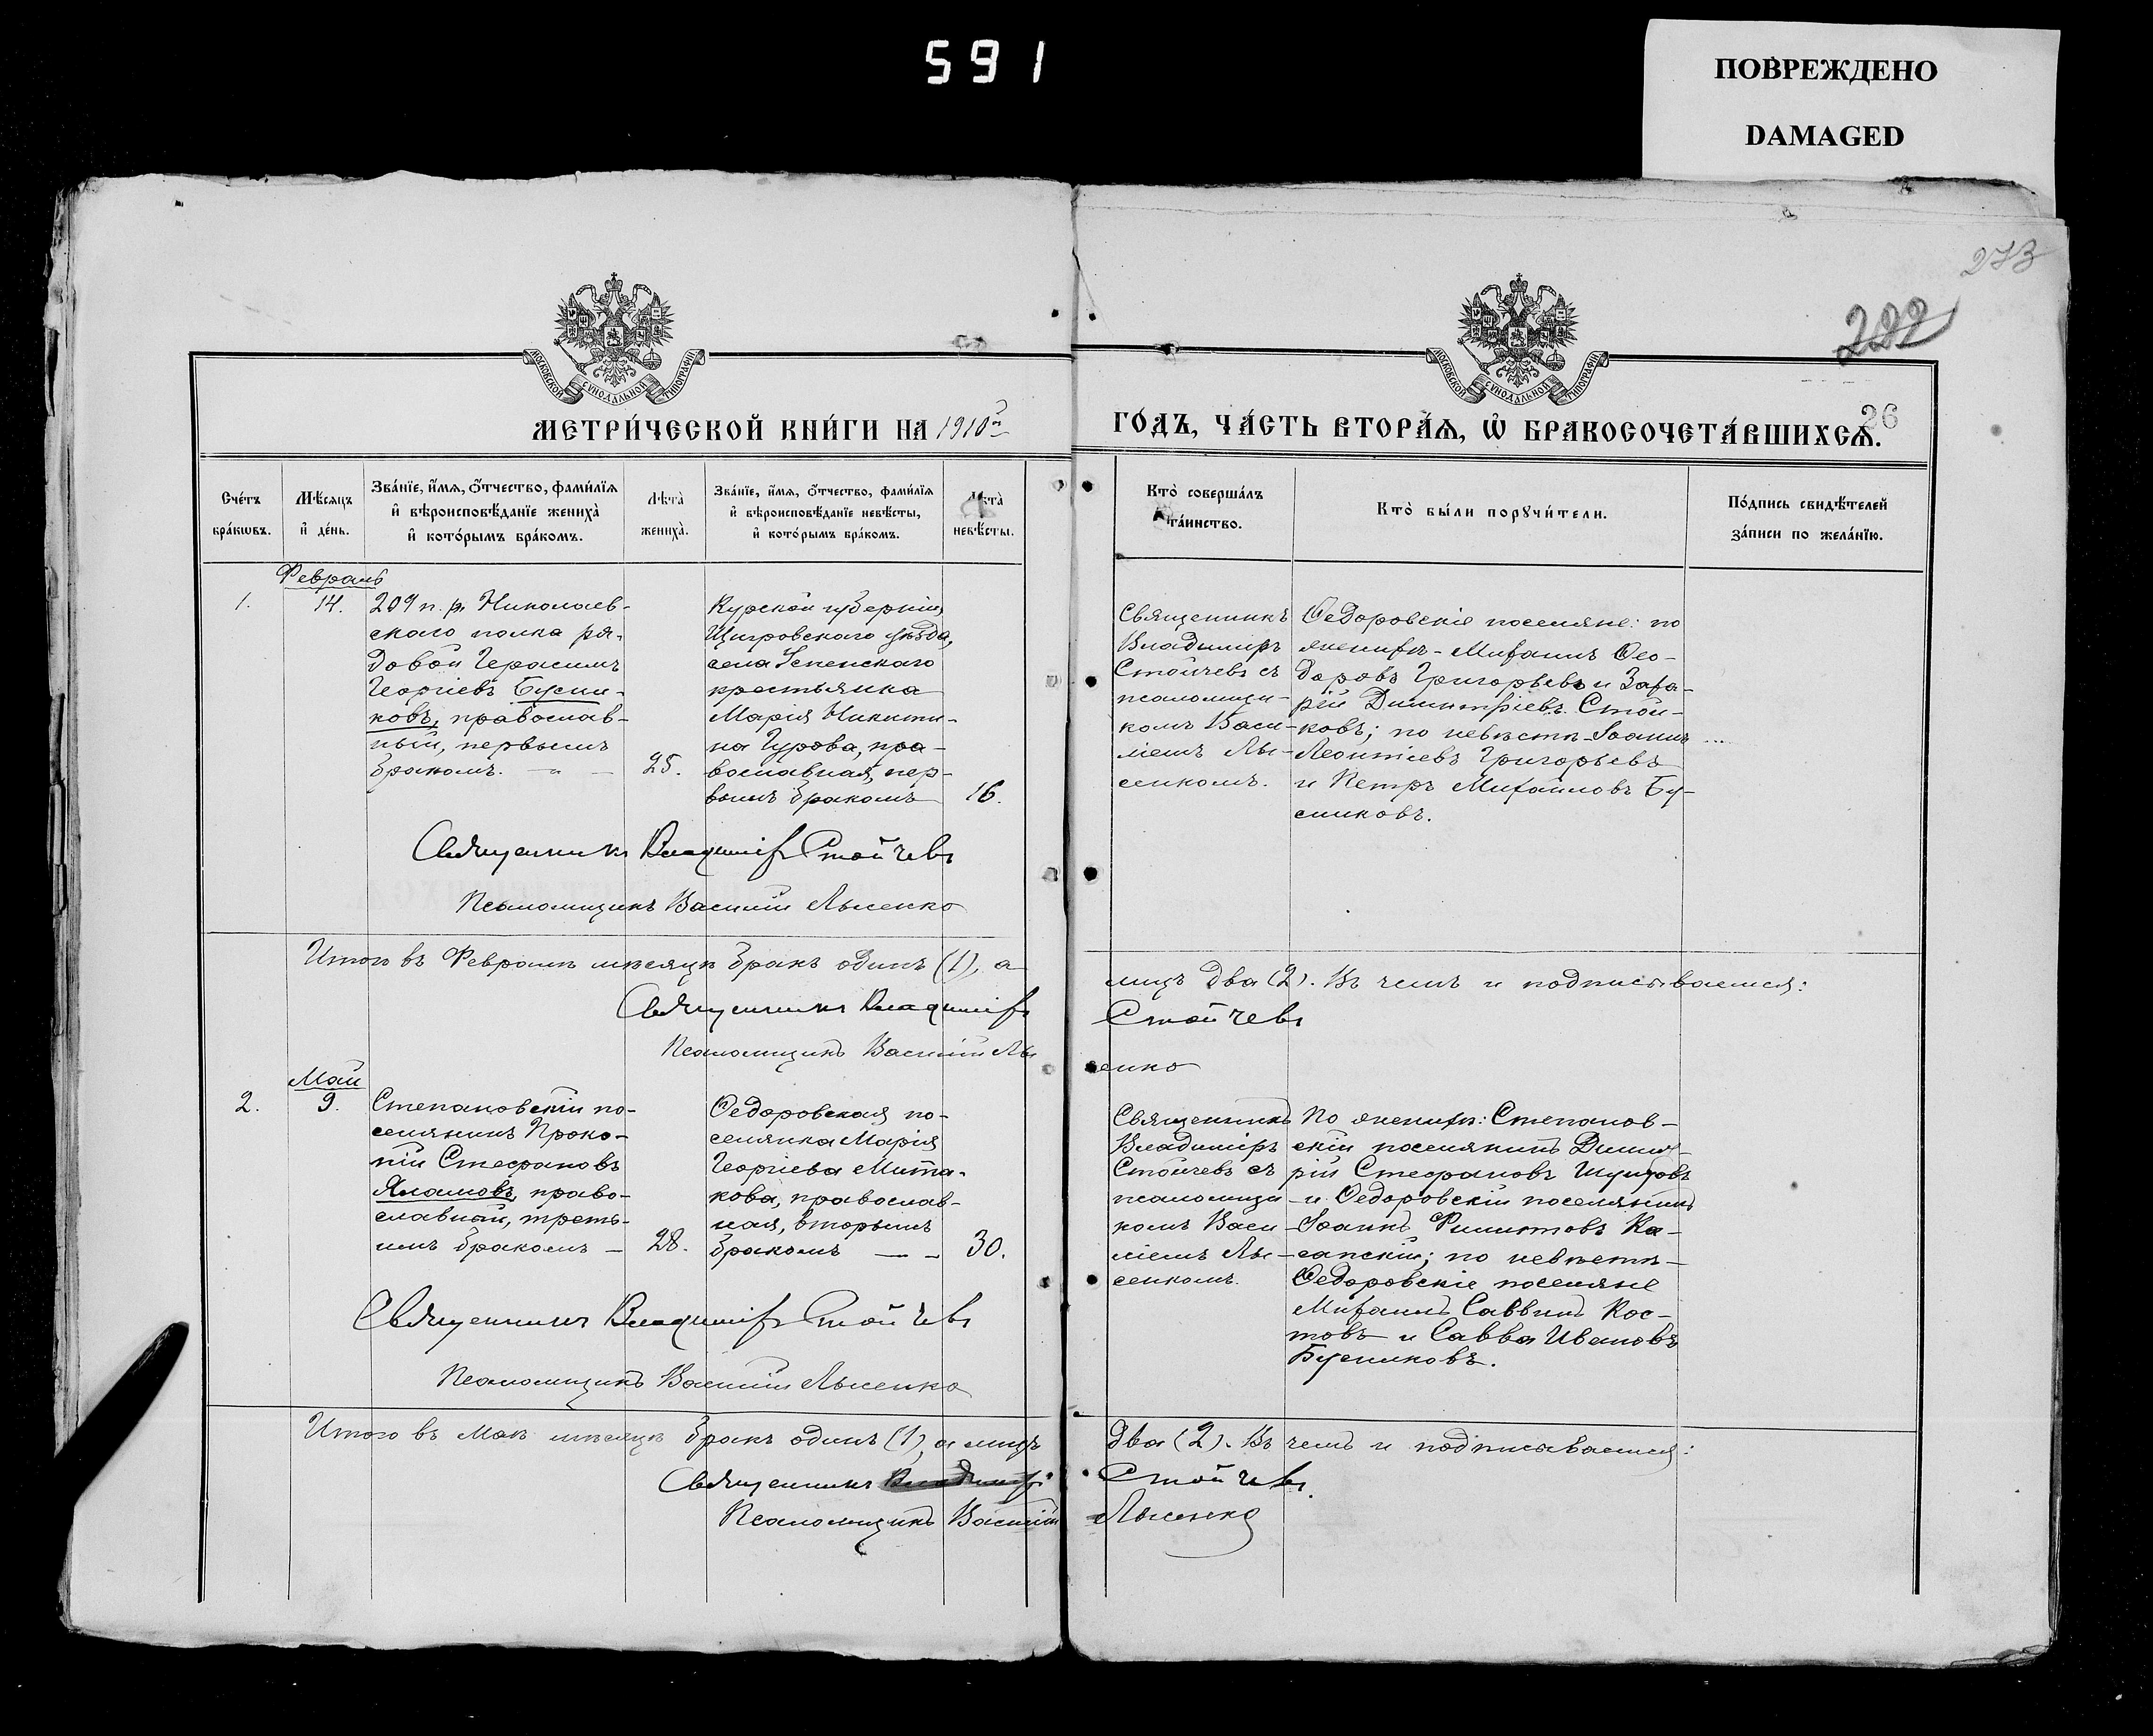 591
ПОВРЕЖДЕНО
DAMAGED
273
222
26
МОСКОВСКОЙ СѴНОДАЛЬНОЙ ТИПОГРАФІИ
МОСКОВСКОЙ СѴНОДАЛЬНОЙ ТИПОГРАФІИ
МЕТРИ́ЧЕСКОЙ КНИ́ГИ НА 1910й
ГО́ДЪ, ЧА́СТЬ ВТОРА́Ѧ, Ѽ БРАКОСОЧЕТА́ВШИХСѦ.
Сче́тъ бра́кѡвъ.
Мѣ́сяцъ и҆ де́нь.
Зва́нїе, и҆́мѧ, о҆́тчество, фами́лїѧ и҆ вѣроисповѣ́данїе жениха̀ и҆ кото́рымъ бра́комъ.
Лѣ́та̀ жениха̀.
Зва́нїе, и҆́мѧ, о҆́тчество, фами́лїѧ и҆ вѣроисповѣ́данїе невѣ́сты, и҆ кото́рымъ бра́комъ.
Лѣ́та̀ невѣ́сты.
Кто̀ соверша́лъ та́инство.
Кто̀ бы́ли порꙋчи́тели.
По́дпись свидѣ́телей за́писи по жела́нїю.
Февраль
1.
14.
209 п. р. Николаев-
скаго полка ря-
довой Герасимъ
Георгіевъ Бусли-
ковъ, православ-
ный, первымъ
бракомъ.
25.
Курской губерніи
Щигровскаго уѣзда,
села
крестьянка
Марія Никити-
на Гурова, пра-
вославная, пер-
вымъ бракомъ
16.
Священникъ
Владиміръ
Стойчевъ съ
псаломщи-
комъ Васи-
ліемъ Лы-
сенкомъ.
Ѳедоровскіе поселяне: по
женихѣ - Михаилъ Ѳео-
доровъ Григорьевъ и Заха-
рій Димитріевъ Стой-
ковъ; по невѣстѣ - Іоаннъ
Леонтіевъ Григорьевъ
и Петръ Михайловъ Бу-
сликовъ.
Священникъ Владиміръ Стойчевъ
Псаломщикъ Василій Лысенко
Итого въ Февралѣ мѣсяцѣ бракъ одинъ (1), а
лицъ два (2). Въ чемъ и подписываемся:
Священникъ Владиміръ Стойчевъ
Псаломщикъ Василій Лысенко
Май
2.
9.
Степановскій по-
селянинъ Проко-
пій Стефановъ
Яламовъ, право-
славный, треть-
имъ бракомъ
28.
Ѳедоровская по-
селянка Марія
Георгіева Мита-
кова, православ-
ная, вторымъ
бракомъ
30.
Священникъ
Владиміръ
Стойчевъ съ
псаломщи-
комъ Васи-
ліемъ Лы-
сенкомъ.
По женихѣ: Степанов-
скій поселянинъ Димит-
рій Стефановъ
и Ѳедоровскій поселянинъ
Іоаннъ Филиповъ Ка-
сапскій; по невѣстѣ
Ѳедоровскіе поселяне
Михаилъ Саввинъ Кос-
товъ и Савва Ивановъ
Бусликовъ.
Священникъ Владиміръ Стойчевъ
Псаломщикъ Василій Лысенко
Итого въ Маѣ мѣсяцѣ бракъ одинъ (1), а лицъ
два (2). Въ чемъ и подписываемся:
Священникъ Владиміръ Стойчевъ.
Псаломщикъ Василій Лысенко